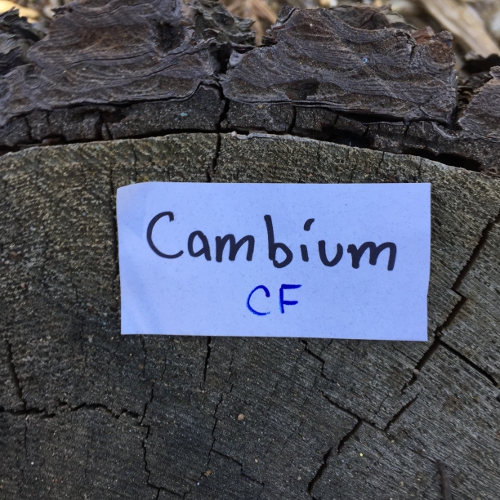 Cambium
CF